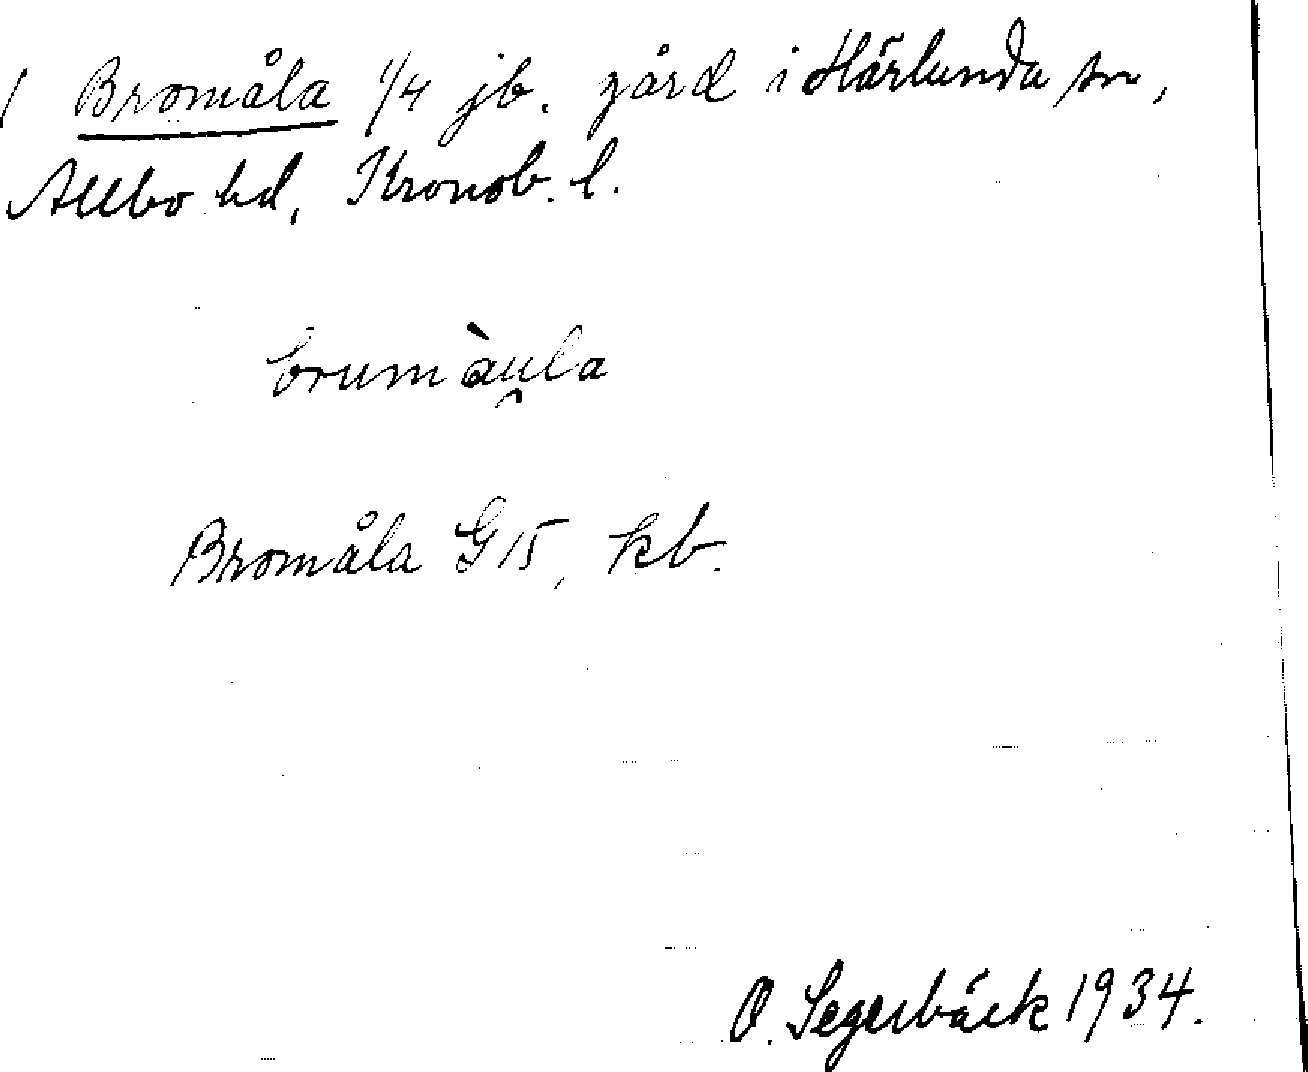 Bromåla 1/4 jb. gård i Härlunda sn,
Allbo hd, Kronob. l.
brumàu̯la
Bromåla G 15, kb.
O. Segerbäck 1934.